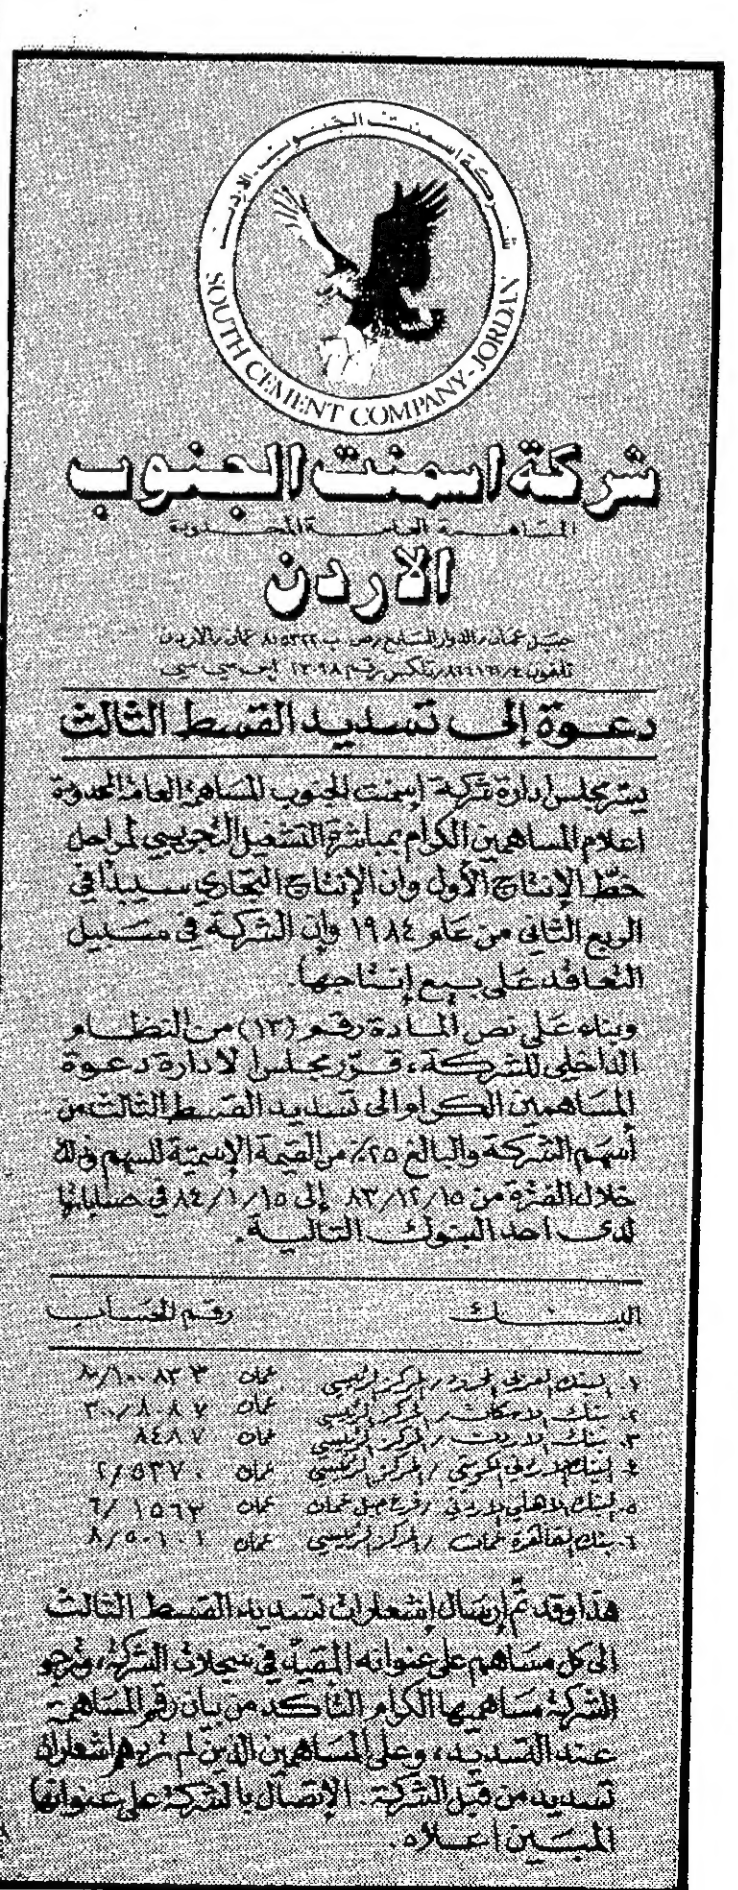 شركة اسمنت الجنوب - الاردن
SOUTH CEMENT COMPANY-JORDAN
شركة اسمنت الجنوب
المساهمة العامة المحدودة
الاردن
جبل عمان/الدوار السابع/ص.ب ٨٠٥٣٢٢ عمان/الاردن
تلفون /تلكس رقم ٢٣٠٩٨ اس سي سي
دعوة إلى تسديد القسط الثالث
يسر مجلس ادارة شركة اسمنت الجنوب المساهمة العامة المحدودة
اعلام المساهمين الكرام بمباشرة التشغيل التجريبي لمراحل
خط الإنتاج الأول وان الإنتاج التجاري سيبدأ في
الربع الثاني من عام ١٩٨٤ وإن الشركة في سبيل
التعاقد على بيع إنتاجها.
وبناء على نص المادة رقم (١٣) من النظام
الداخلي للشركة، قرر مجلس الادارة دعوة
المساهمين الكرام الى تسديد القسط الثالث من
أسهم الشركة والبالغ ٢٥٪ من القيمة الإسمية للسهم وذلك
خلال الفترة من ٨٣/١٢/١٥ إلى ٨٤/١/١٥ في حساباتها
لدى احد البنوك التالية.
البنك رقم الحساب
١. البنك العربي المحدود/المركز الرئيسي عمان
٢. بنك الاسكان/المركز الرئيسي عمان ٣٠٠/٨٠٨٧
٣. بنك الاردن/المركز الرئيسي عمان ٨٤٨٧
٤. البنك الاردني الكويتي/المركز الرئيسي عمان ٢/٥٣٧٠
٥. البنك الاهلي الاردني/فرع جبل عمان عمان ٦/١٥٦٣
٦. بنك القاهرة عمان/المركز الرئيسي عمان ٨/٥٠١٠١
هذا وقد تم إرسال إشعارات لتسديد القسط الثالث
الى كل مساهم على عنوانه المقيد في سجلات الشركة، وترجو
الشركة مساهميها الكرام التأكد من بيان رقم المساهم
عند التسديد، وعلى المساهمين الذين لم تردهم اشعارات
تسديد من قبل الشركة. الإتصال بالشركة على عنوانها
المبين اعلاه.